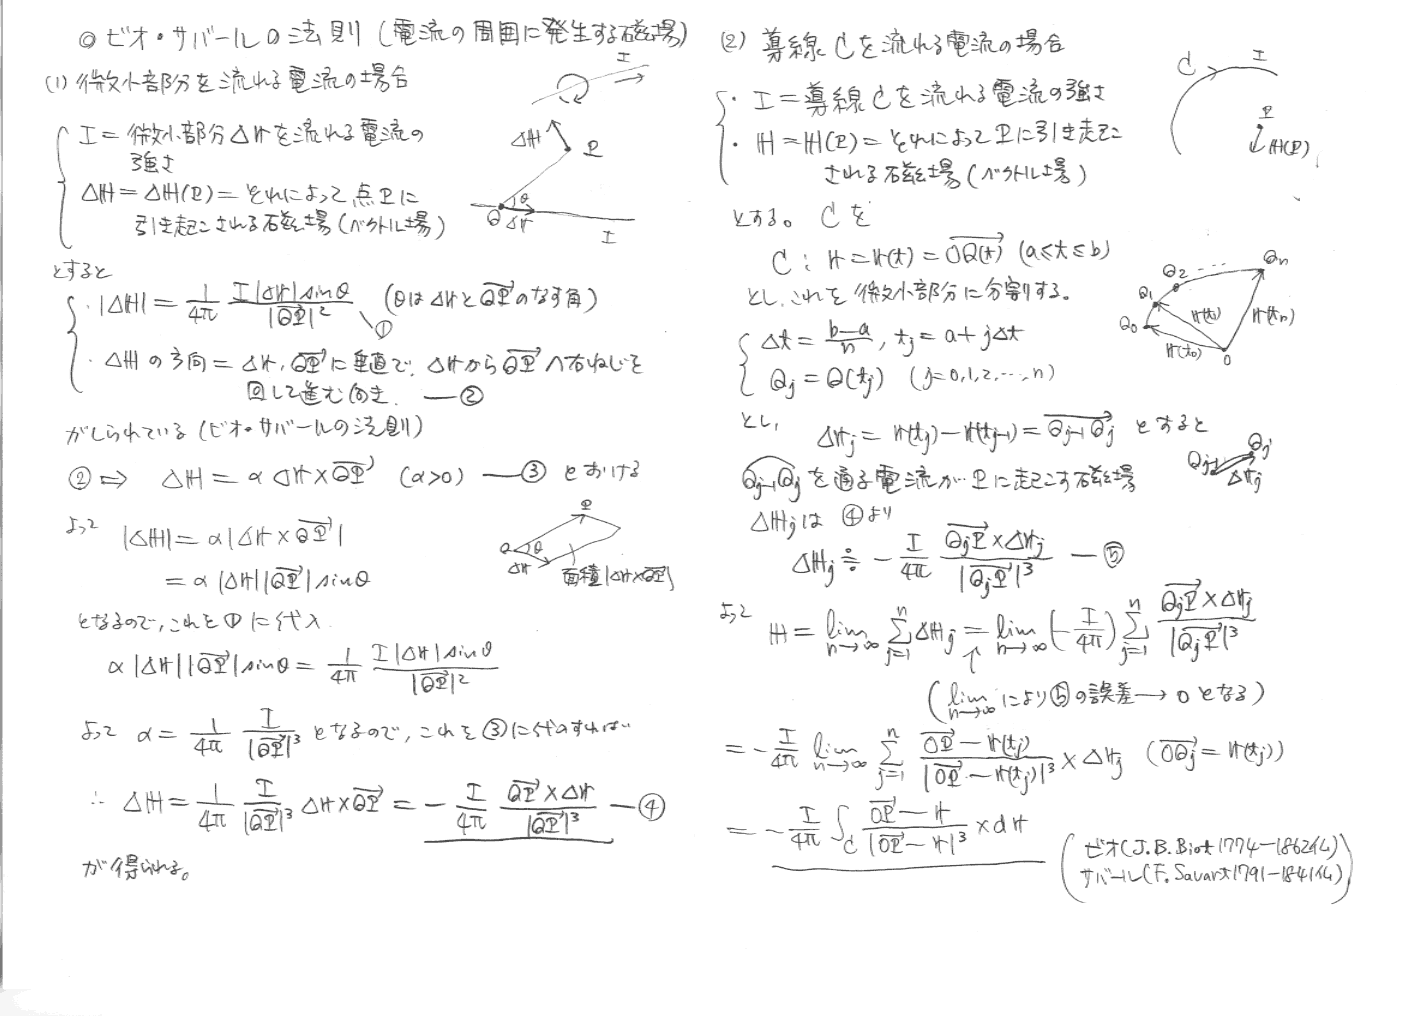 ◎ ビオ・サバールの法則 (電流の周囲に発生する磁場)
(1) 微小部分を流れる電流の場合
I
I = 微小部分Δrを流れる電流の
強さ
ΔH = ΔH(P) = それによって点Pに
引き起こされる磁場(ベクトル場)
ΔH P
Q θ Δr I
とすると
・|ΔH| = 1/4π I|Δr|sinθ/|QP|² (θはΔrとQPのなす角)
①
・ΔHの方向 = Δr, QPに垂直で、ΔrからQPへ右ねじを
回して進む向き. ―②
がしられている(ビオ・サバールの法則)
② ⇒ ΔH = α Δr×QP (α>0) ―③ とおける
よって |ΔH| = α|Δr×QP|
= α|Δr||QP|sinθ
P Q θ Δr 面積|Δr×QP|
となるので, これを①に代入
α|Δr||QP|sinθ = 1/4π I|Δr|sinθ/|QP|²
よって α = 1/4π I/|QP|³ となるので, これを③に代入すれば
∴ ΔH = 1/4π I/|QP|³ Δr×QP = - I/4π QP×Δr/|QP|³ ―④
が得られる。
(2) 導線Cを流れる電流の場合
・I = 導線Cを流れる電流の強さ
・H = H(P) = それによってPに引き起こ
される磁場(ベクトル場)
C I P H(P)
とする。 Cを
C : r = r(t) = OQ(t) (a≤t≤b)
とし, これを微小部分に分割する。
Q₀ Q₁ Q₂ … Qn r(t₀) r(t₁) r(tn) O
Δt = b-a/n, tj = a + jΔt
Qj = Q(tj) (j=0,1,2,…,n)
とし, Δrj = r(tj) - r(tj-1) = Qj-1Qj とすると
Qj-1 Qj Δrj
Qj-1Qjを通る電流がPに起こす磁場
ΔHjは ④より
ΔHj ≒ - I/4π QjP×Δrj/|QjP|³ ―⑤
よって H = lim n→∞ Σ n j=1 ΔHj = lim n→∞ (-I/4π) Σ n j=1 QjP×Δrj/|QjP|³
↑
(lim n→∞ により⑤の誤差→0となる)
= - I/4π lim n→∞ Σ n j=1 OP - r(tj)/|OP - r(tj)|³ × Δrj (OQj = r(tj))
= - I/4π ∫C OP - r/|OP - r|³ × dr
(ビオ(J.B.Biot 1774-1862仏)
サバール(F.Savart 1791-1841仏))